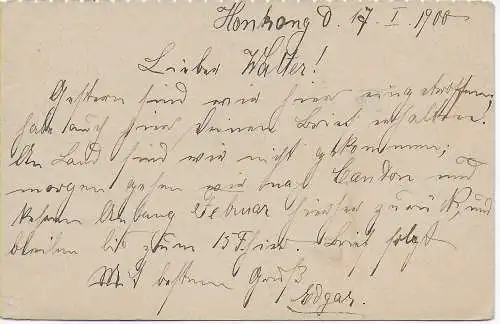 Honkong d. 17. I. 1900
Lieber Walter!
Gestern sind wir hier eingetroffen,
habe auch hier deinen Brief erhalten.
An Land sind wir nicht gekommen;
morgen gehen wir nac Canton und
kehren Anfang Februar hierher zurück, und
bleiben bis zum 15. hier. Brief folgt
Mit bestem Gruß
Edgar.